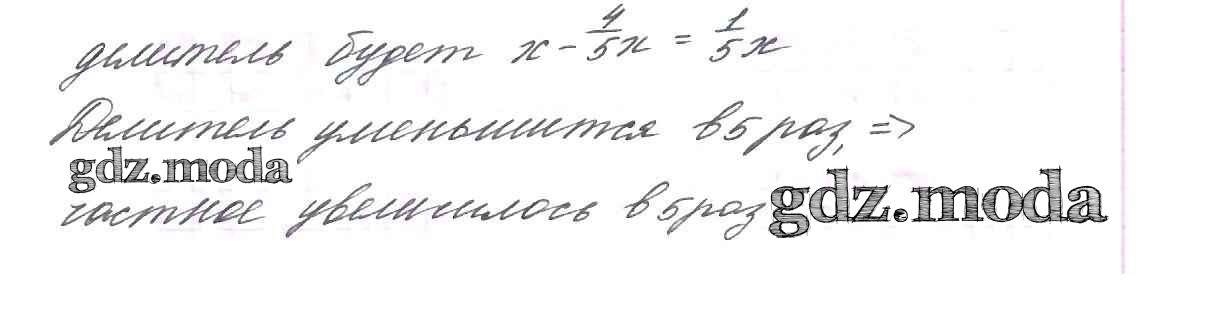 делитель будет x - 4/5 x = 1/5 x
Делитель уменьшится в 5 раз, =>
gdz.moda
частное увеличилось в 5 раз gdz.moda